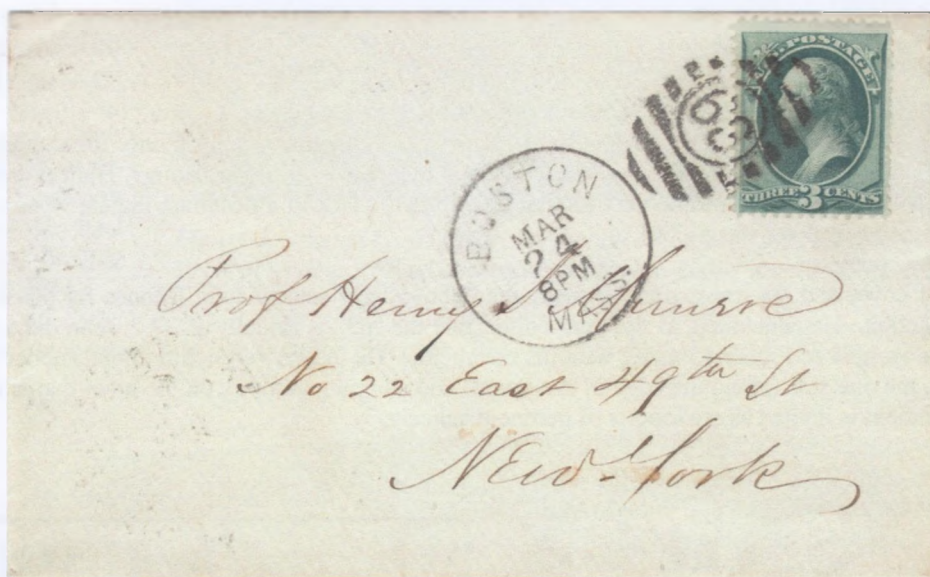 U.S. POSTAGE
63
THREE 3 CENTS
BOSTON
MAR
24
8PM
MASS.
Prof Henry S. Munroe
No 22 East 49th St
New-York